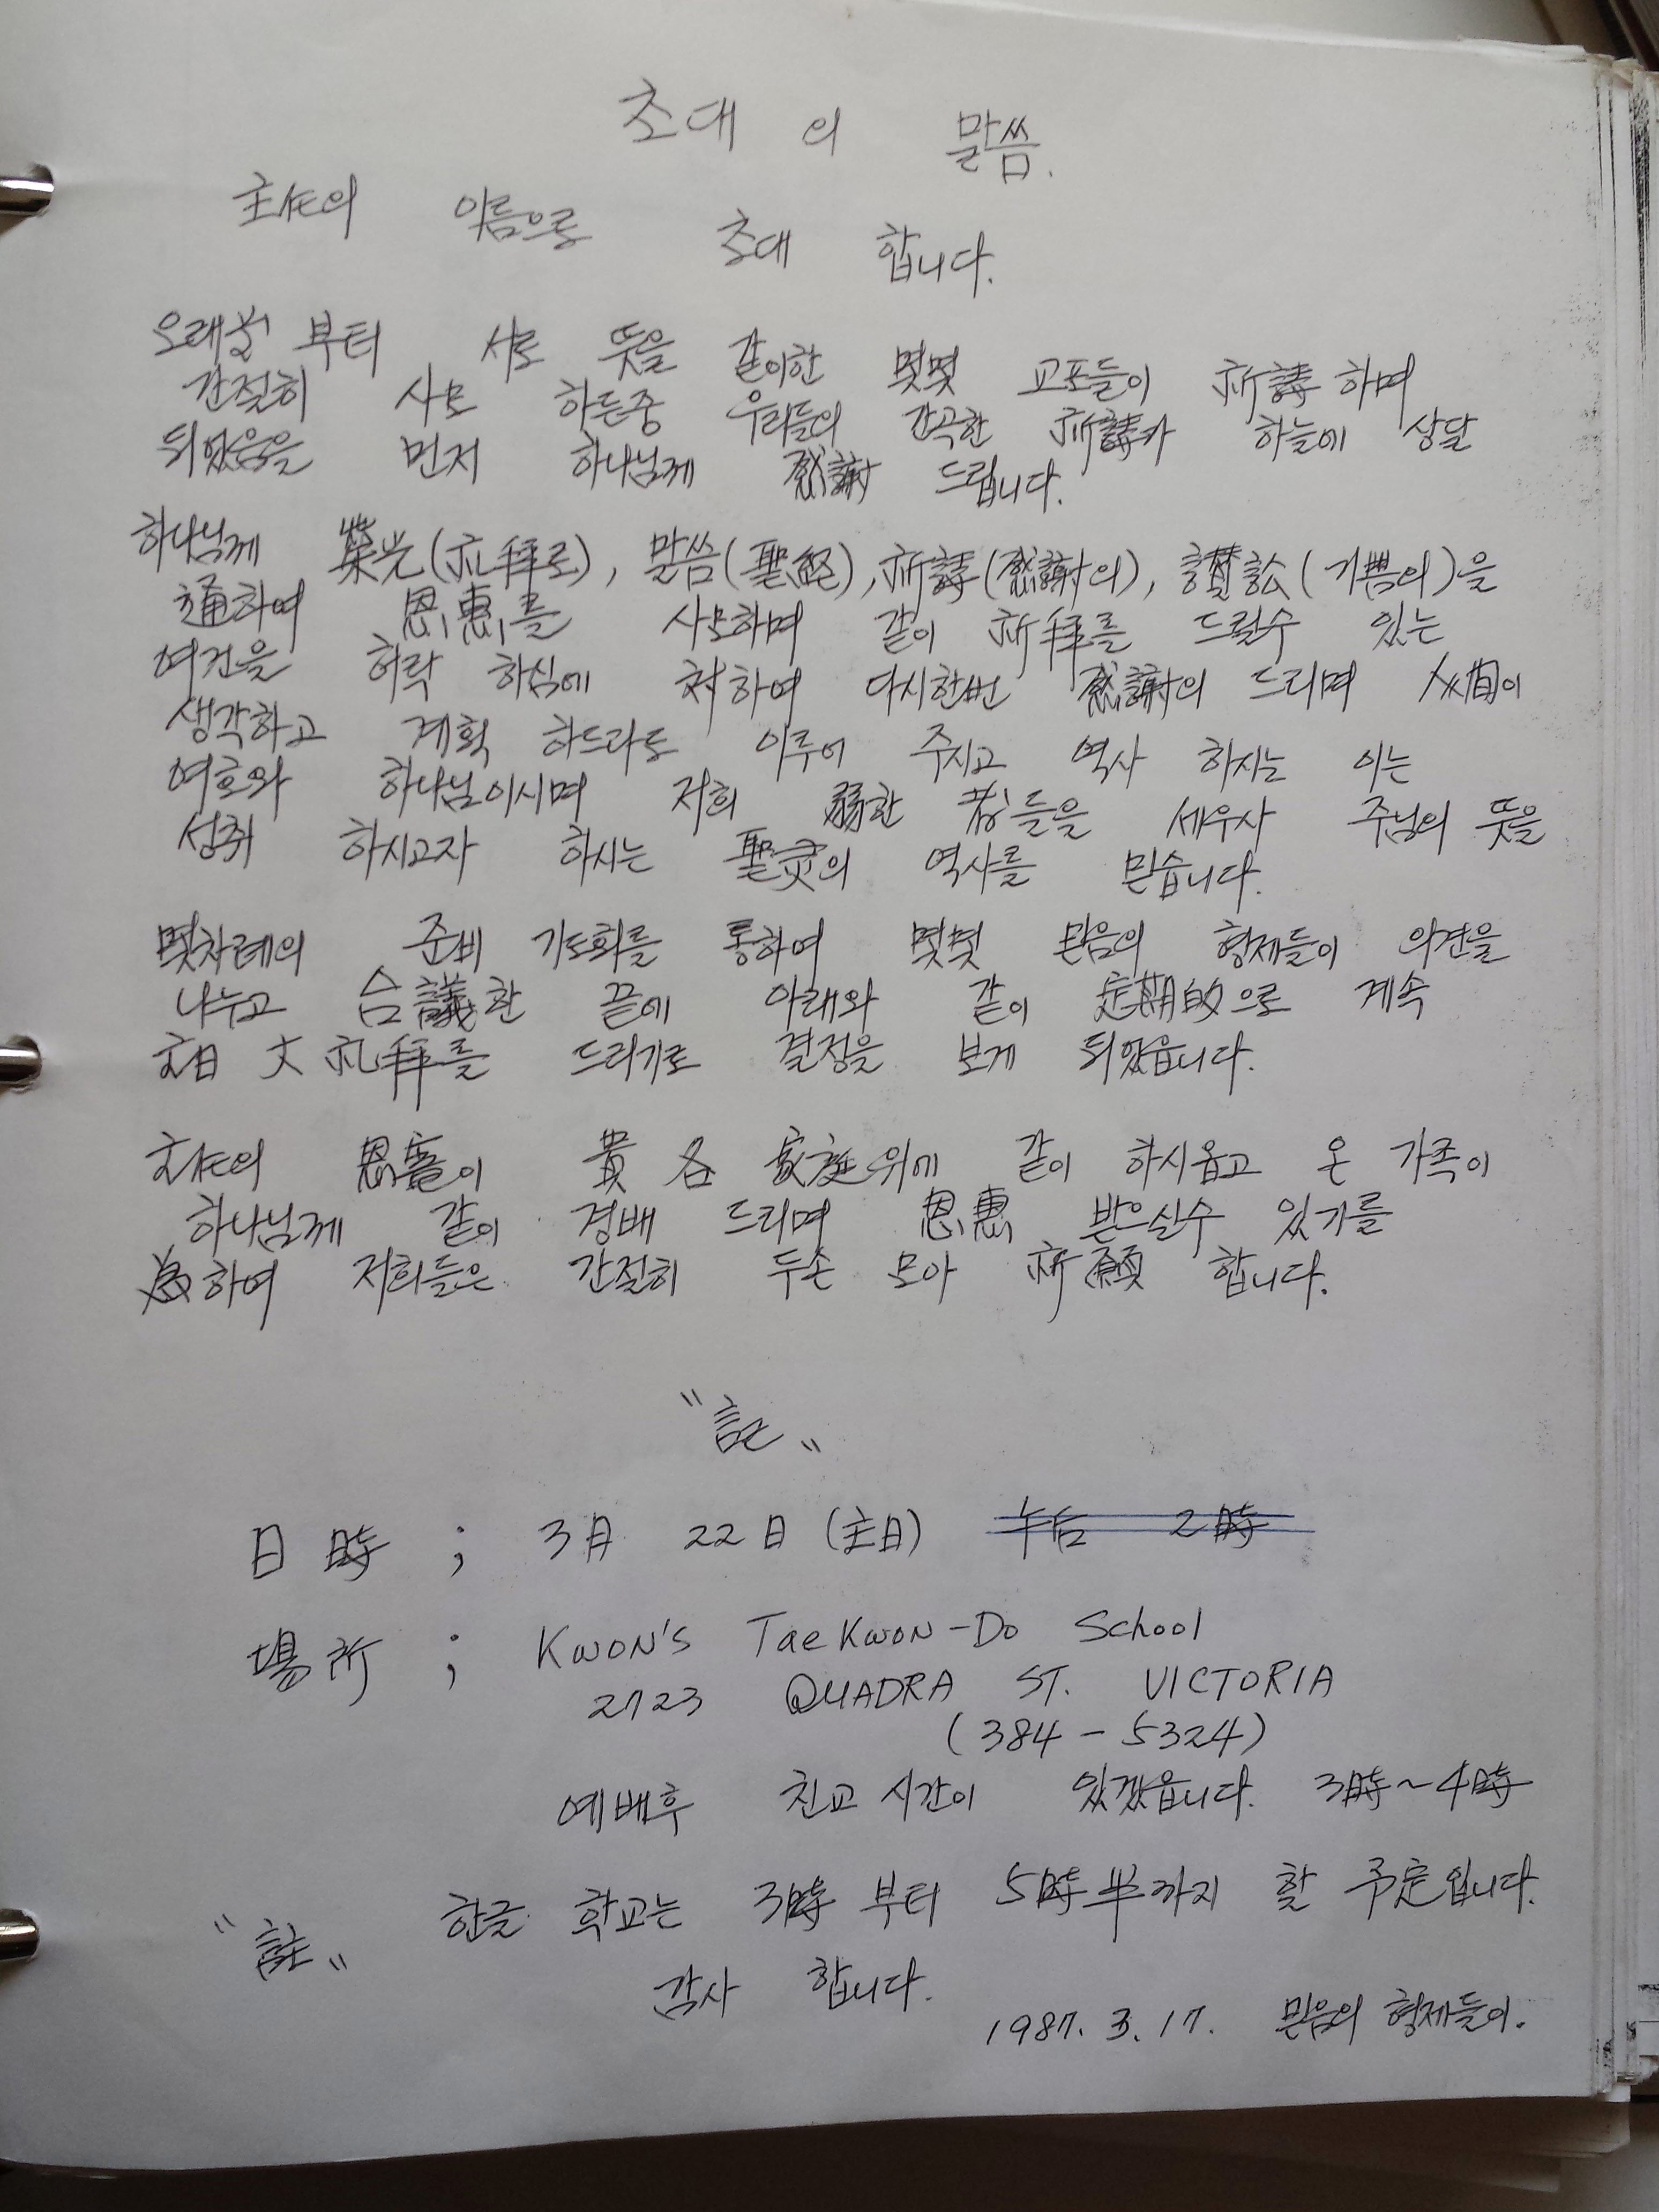 초대 의 말씀.
主任의 이름으로 초대 합니다.
오래 부터 서로 뜻을 같이한 몇몇 교포들이 祈禱 하며
간절히 사모 하든중 우리들의 간곡한 祈禱가 하늘에 상달
되었음을 먼저 하나님께 感謝 드립니다.
하나님께 榮光(礼拜로), 말씀(聖經), 祈禱(感謝의), 讚訟(기쁨의)을
通하여 恩惠를 사모하며 같이 礼拜를 드릴수 있는
여건을 허락 하심에 対하여 다시한번 感謝의 드리며 人間이
생각하고 계획 하드라도 이루어 주시고 역사 하시는 이는
여호와 하나님이시며 저희 弱한 者들을 세우사 주님의 뜻을
성취 하시고자 하시는 聖灵의 역사를 믿습니다.
몇차례의 준비 기도회를 통하여 몇몇 믿음의 형제들이 의견을
나누고 合議한 끝에 아래와 같이 定期的으로 계속
主日 大 礼拜를 드리기로 결정을 보게 되었읍니다.
主任의 恩寵이 貴 各 家庭위에 같이 하시옵고 온 가족이
하나님께 같이 경배 드리며 恩惠 받으실수 있기를
為하여 저희들은 간절히 두손 모아 祈願 합니다.
"記"
日時 ; 3月 22日 (主日) 午后 2時
場所 ; KWON'S TaeKwon-Do School
2723 QUADRA ST. VICTORIA
(384-5324)
예배후 친교 시간이 있겠읍니다. 3時~4時
"註" 한글 학교는 3時 부터 5時半까지 할 予定입니다.
감사 합니다.
1987. 3. 17. 믿음의 형제들이.